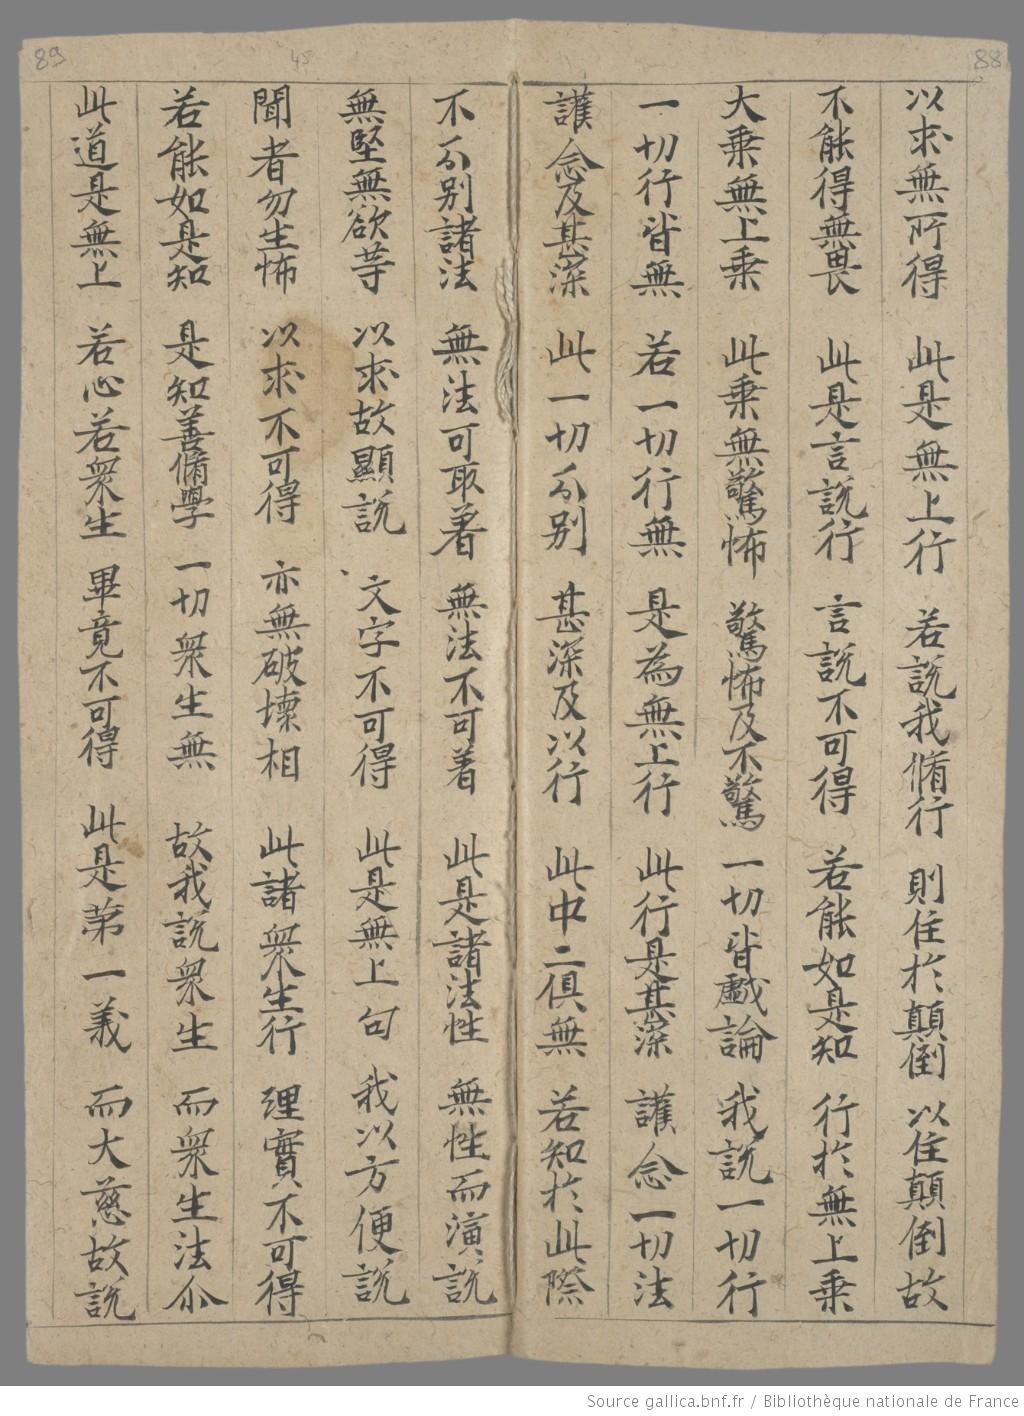 88
以求無所得 此是無上行 若説我脩行 則住於顛倒 以住顛倒故
不能得無畏 此是言説行 言説不可得 若能如是知 行於無上乗
大乗無上乗 此乗無驚怖 驚怖及不驚 一切皆戲論 我説一切行
一切行皆無 若一切行無 是為無上行 此行是甚深 護念一切法
護念及甚深 此一切分别 甚深及以行 此中二俱無 若知於此際
89
45
不分别諸法 無法可取着 無法不可着 此是諸法性 無性而演説
無堅無欲等 以求故顯説 文字不可得 此是無上句 我以方便説
聞者勿生怖 以求不可得 亦無破壞相 此諸衆生行 理實不可得
若能如是知 是知善脩學 一切衆生無 故我説衆生 而衆生法尒
此道是無上 若心若衆生 畢竟不可得 此是第一義 而大慈故説
Source gallica.bnf.fr / Bibliothèque nationale de France